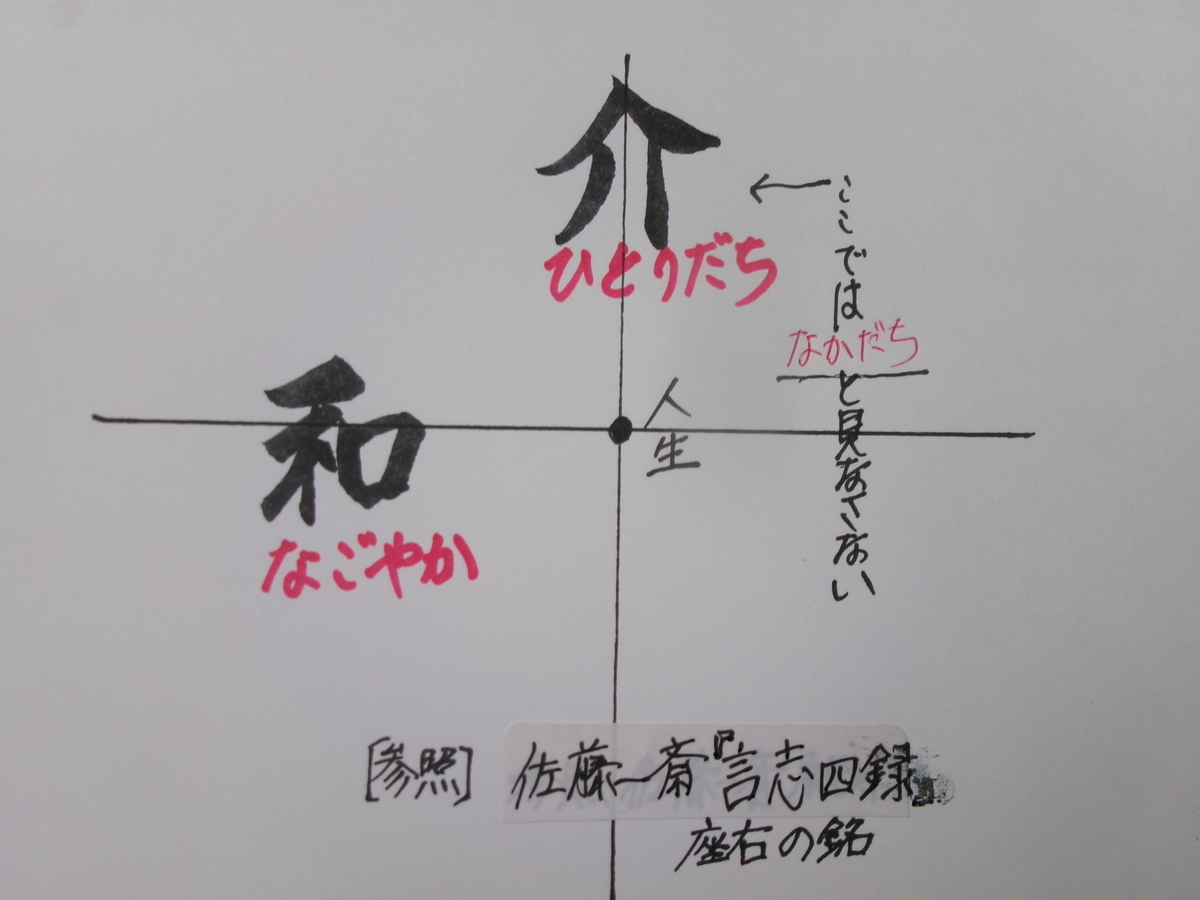 介
ひとりだち
ここでは
なかだち
と見なさない
和
なごやか
人生
[参照] 佐藤一斎『言志四録』
座右の銘